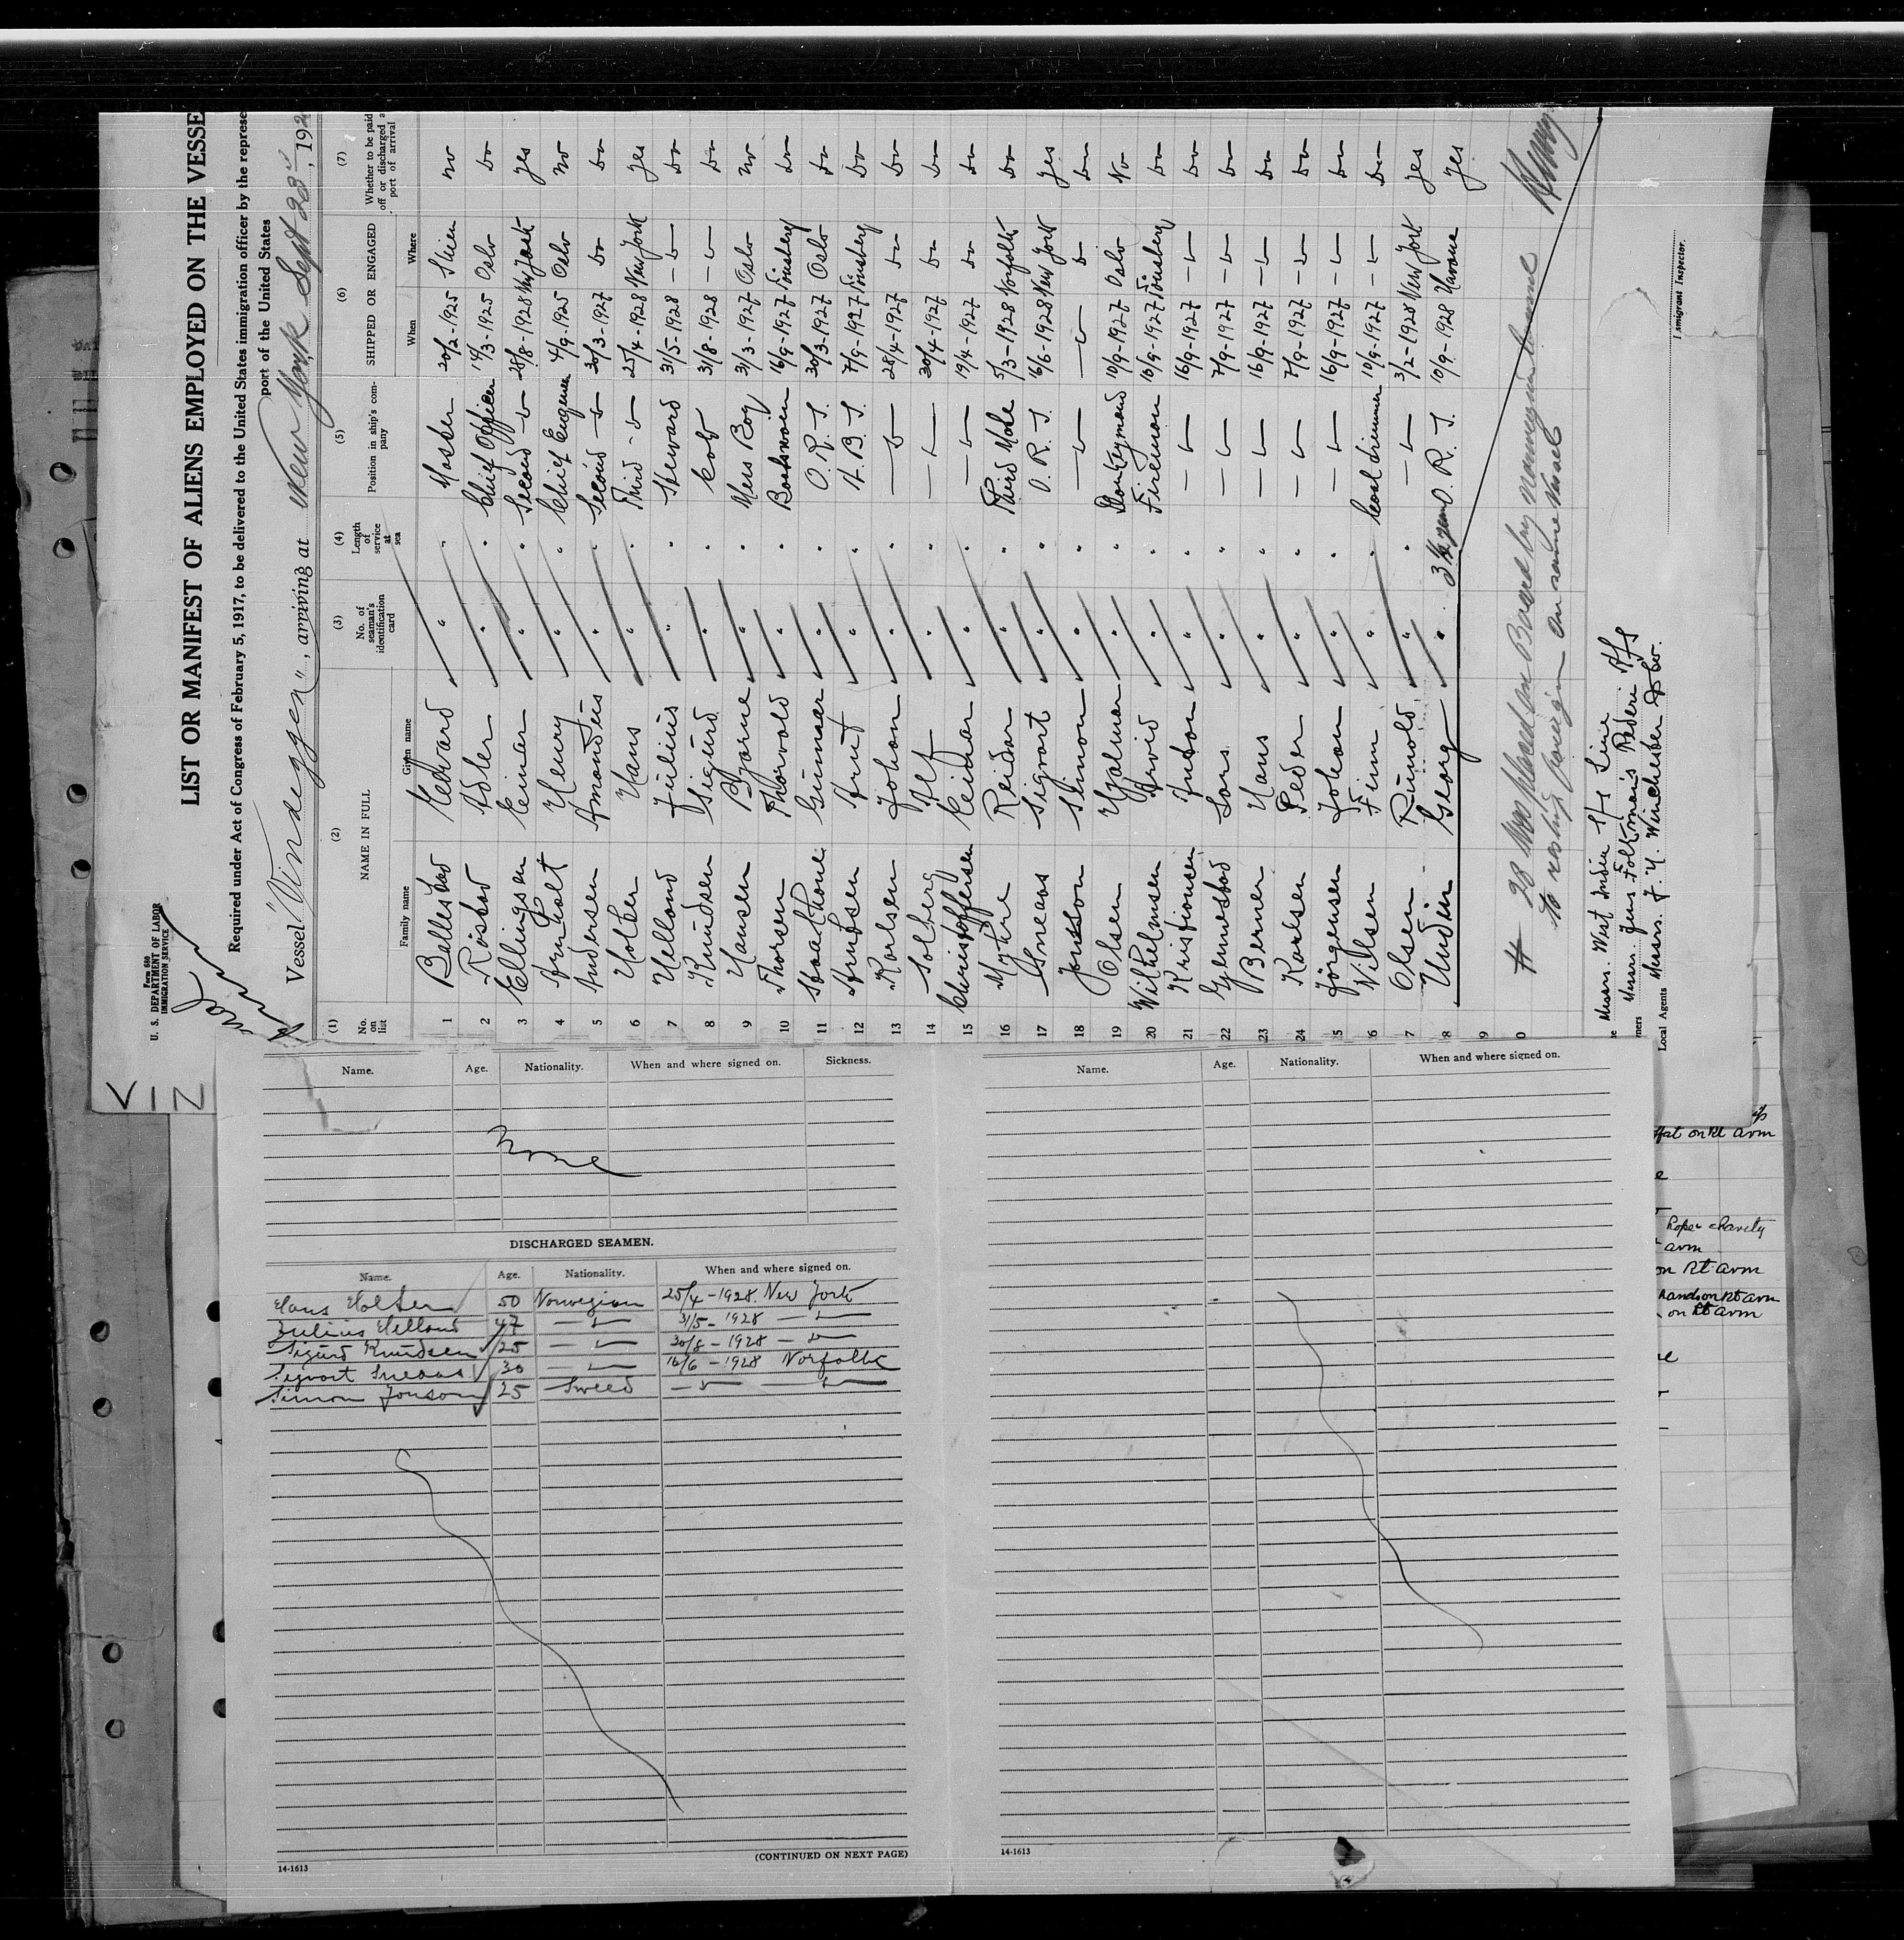 Form 680
U. S. DEPARTMENT OF LABOR
IMMIGRATION SERVICE
VIN
LIST OR MANIFEST OF ALIENS EMPLOYED ON THE VESSE
Required under Act of Congress of February 5, 1917, to be delivered to the United States immigration officer by the represe
port of the United States
Vessel "Vindeggen", arriving at New York Sept 28, 192
(1) (2) (3) (4) (5) (6) (7)
No. on list NAME IN FULL No. of seaman's identification card Length of service at sea Position in ship's company SHIPPED OR ENGAGED Whether to be paid off or discharged a port of arrival
Family name Given name When Where
1 Ballestad Hedvard " " Master 20/2-1925 Skien no
2 Röstad Adler " " Chief Officer 14/3-1925 Oslo do
3 Ellingsen Einar " " Second do 28/8-1928 New York yes
4 Arnholt Henny " " Chief Engineer 4/9-1925 Oslo no
5 Andersen Amandus " " Second do 30/3-1927 do do
6 Holter Hans " " Third do 25/4-1928 New York yes
7 Helland Julius " " Steward 31/5-1928 do do
8 Knudsen Sigurd " " Cook 31/8-1928 do do
9 Hansen Bjarne " " Mess Boy 31/3-1927 Oslo no
10 Thorsen Thorvald " " Boatswain 16/9-1927 Tönsberg do
11 Gunnar " " O. R. S. 30/3-1927 Oslo do
12 Arntsen Arnt " " A. B. S. 7/9-1927 Tönsberg do
13 Karlsen Johan " " do 28/4-1927 do do
14 Solberg Alf " " do 30/4-1927 do do
15 Christoffersen Reidar " " do 19/4-1927 do do
16 Myhre Reidar " " Third Mate 5/3-1928 Norfolk do
17 Sneaas Sigvart " " O. R. S. 16/6-1928 New York yes
18 Jonsson Simon " " do do do do
19 Olsen Hjalmar " " Donkeymand 10/9-1927 Oslo No
20 Wilhelmsen Arvid " " Fireman 16/9-1927 Tönsberg do
21 Kristiansen " " do 16/9-1927 do do
22 Lars " " do 7/9-1927 do do
23 Berner Hans " " do 16/9-1927 do do
24 Karlsen Peder " " do 7/9-1927 do do
5 Jörgensen Johan " " do 16/9-1927 do do
6 Nilsen Finn " " Coal trimmer 10/9-1927 do do
7 Olsen Runold " " do 3/2-1928 New York yes
8 Undin Georg " 3 1/2 years O. R. S. 10/9-1928 Havana yes
9
0
# 28 Men placed on Board by
to reship foreign on same Vessel
Messrs. West India S/S Line
ners Messrs. Jens Folkman's Rederi A/S
Local Agents Messrs. F. H. Winchester & Co.
Immigrant Inspector.
Name. Age. Nationality. When and where signed on. Sickness.
None
DISCHARGED SEAMEN.
Name. Age. Nationality. When and where signed on.
Hans Holter 50 Norwegian 25/4-1928. New York
Julius Helland 47 do 31/5-1928 do
Sigurd Knudsen 25 do 30/8-1928 do
Sigvart Sneaas 30 do 16/6-1928 Norfolk
Simon Jonson 25 Sweed do do
(CONTINUED ON NEXT PAGE)
14-1613
Name. Age. Nationality. When and where signed on.
14-1613
on Rt arm
hope charity
arm
on Rt arm
hands on Rt arm
on Rt arm